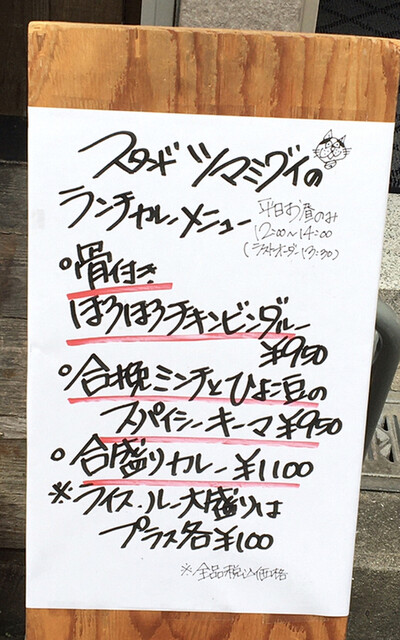 スタンド ツマミグイの
ランチカレーメニュー
平日お昼のみ
12:00~14:00
(ラストオーダー13:30)
○骨付き
ほろほろチキンビンダルー
¥950
○合挽ミンチとひよこ豆の
スパイシーキーマ¥950
○合盛りカレー¥1100
※ライス・ルー大盛りは
プラス各¥100
※全品税込価格